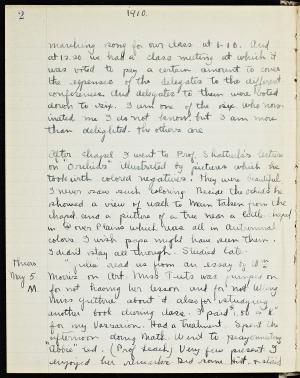 2
1910.
marching song for our class at 6.10. And
at 12.20 we had a class meeting at which it
was voted to pay a certain amount to cover
the expenses of the delegates to the different
conferences. And delegates to them were voted
down to six. I am one of the six. Who nom-
inated me I do not know but I am more
than delighted. The others are
After chapel I went to Prof. lecture
on Orchids illustrated by pictures which he
took with colored negatives. They were beautiful.
I never saw such coloring. Beside the orchids he
showed a view of walk to Main taken from the
chapel and a picture of a tree near a little chapel
in over Plains which was all in Autumnal
colors. I wish papa might have seen them.
I didn't stay all through. Studied Late.
Thurs.
May 5.
M.
read us from an essay of Wm
Morris on Art. Miss was jumped on
for not having her lesson and for not telling
Miss Guthrie about it also for studying
another book during class. I paid
for my Vassarion. Had a treatment. Spent the
afternoon doing Math. Went to
"Abbie" led. (Prof. Leach) Very few present. I
enjoyed her remarks. Did some Lit. and